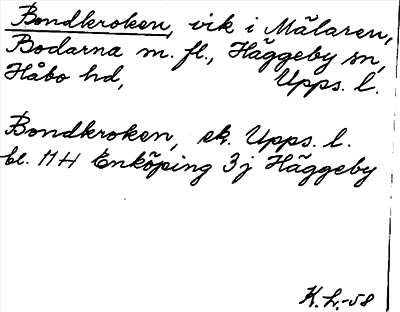 Bondkroken, vik i Mälaren,
Bodarna m. fl., Häggeby sn,
Håbo hd, Upps. l.
Bondkroken, ek. Upps. l.
bl. 11H Enköping 3j Häggeby
K.L.-58